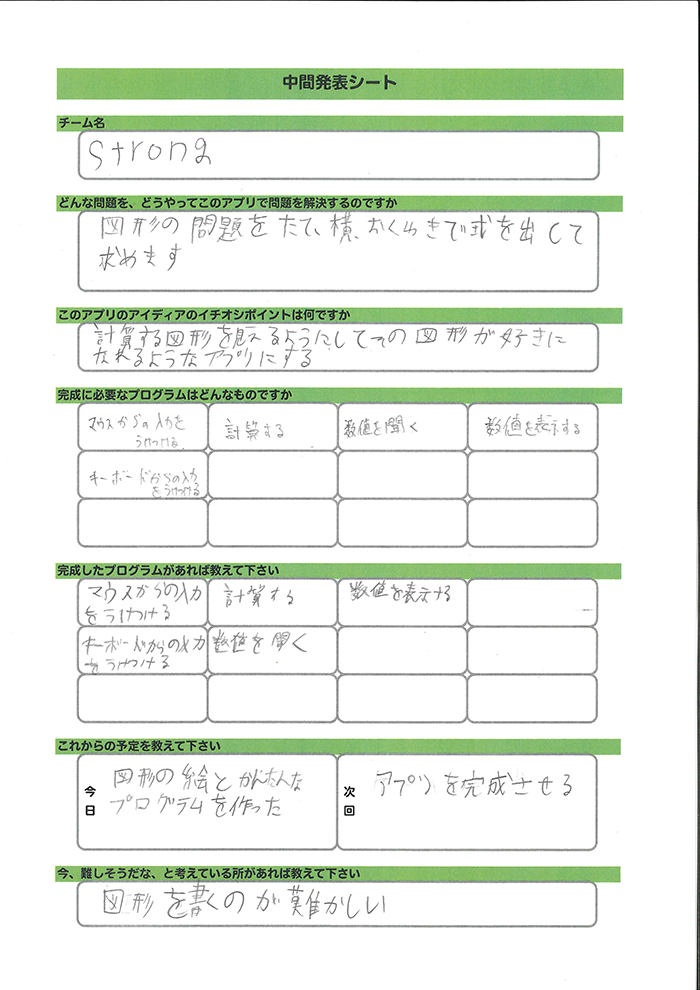 中間発表シート
チーム名
Strong
どんな問題を、どうやってこのアプリで問題を解決するのですか
図形の問題をたて、横、おくゆきで式を出して
求めます
このアプリのアイディアのイチオシポイントは何ですか
計算する図形を見えるようにしてその図形が好きに
なれるようなアプリにする
完成に必要なプログラムはどんなものですか
マウスからの入力を
うけつける
計算する
数値を聞く
数値を表示する
キーボードからの入力
をうけつける
完成したプログラムがあれば教えて下さい
マウスからの入力
をうけつける
計算する
数値を表示する
キーボードからの入力
をうけつける
数値を聞く
これからの予定を教えて下さい
今日
図形の絵とかんたんな
プログラムを作った
次回
アプリを完成させる
今、難しそうだな、と考えている所があれば教えて下さい
図形を書くのが難かしい